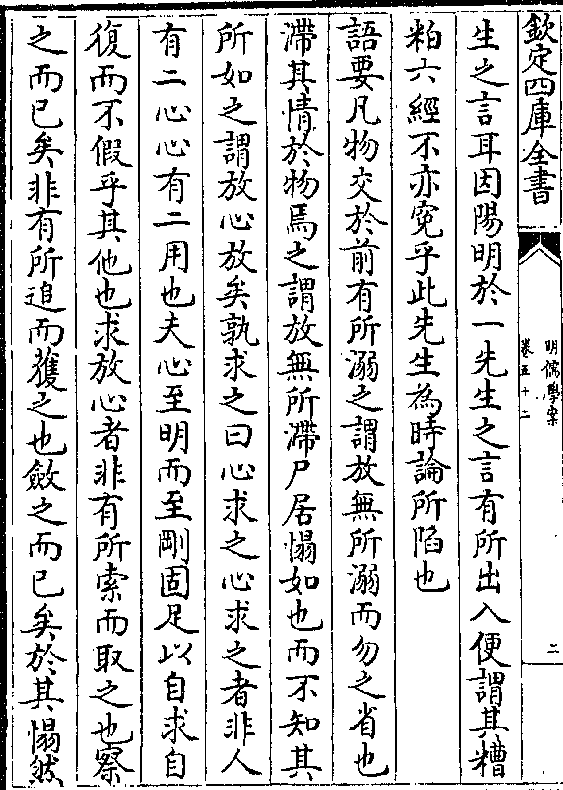 欽定四庫全書
明儒學案
卷五十二
二
生之言耳因陽明於一先生之言有所出入便謂其糟
粕六經不亦寃乎此先生為時論所陷也
語要凡物交於前有所溺之謂放無所溺而勿之省也
滯其情於物焉之謂放無所滯尸居愓如也而不知其
所如之謂放心放矣孰求之曰心求之心求之者非人
有二心心有二用也夫心至明而至剛固足以自求自
復而不假乎其他也求放心者非有所索而取之也察
之而已矣非有所追而獲之也斂之而已矣於其愓然